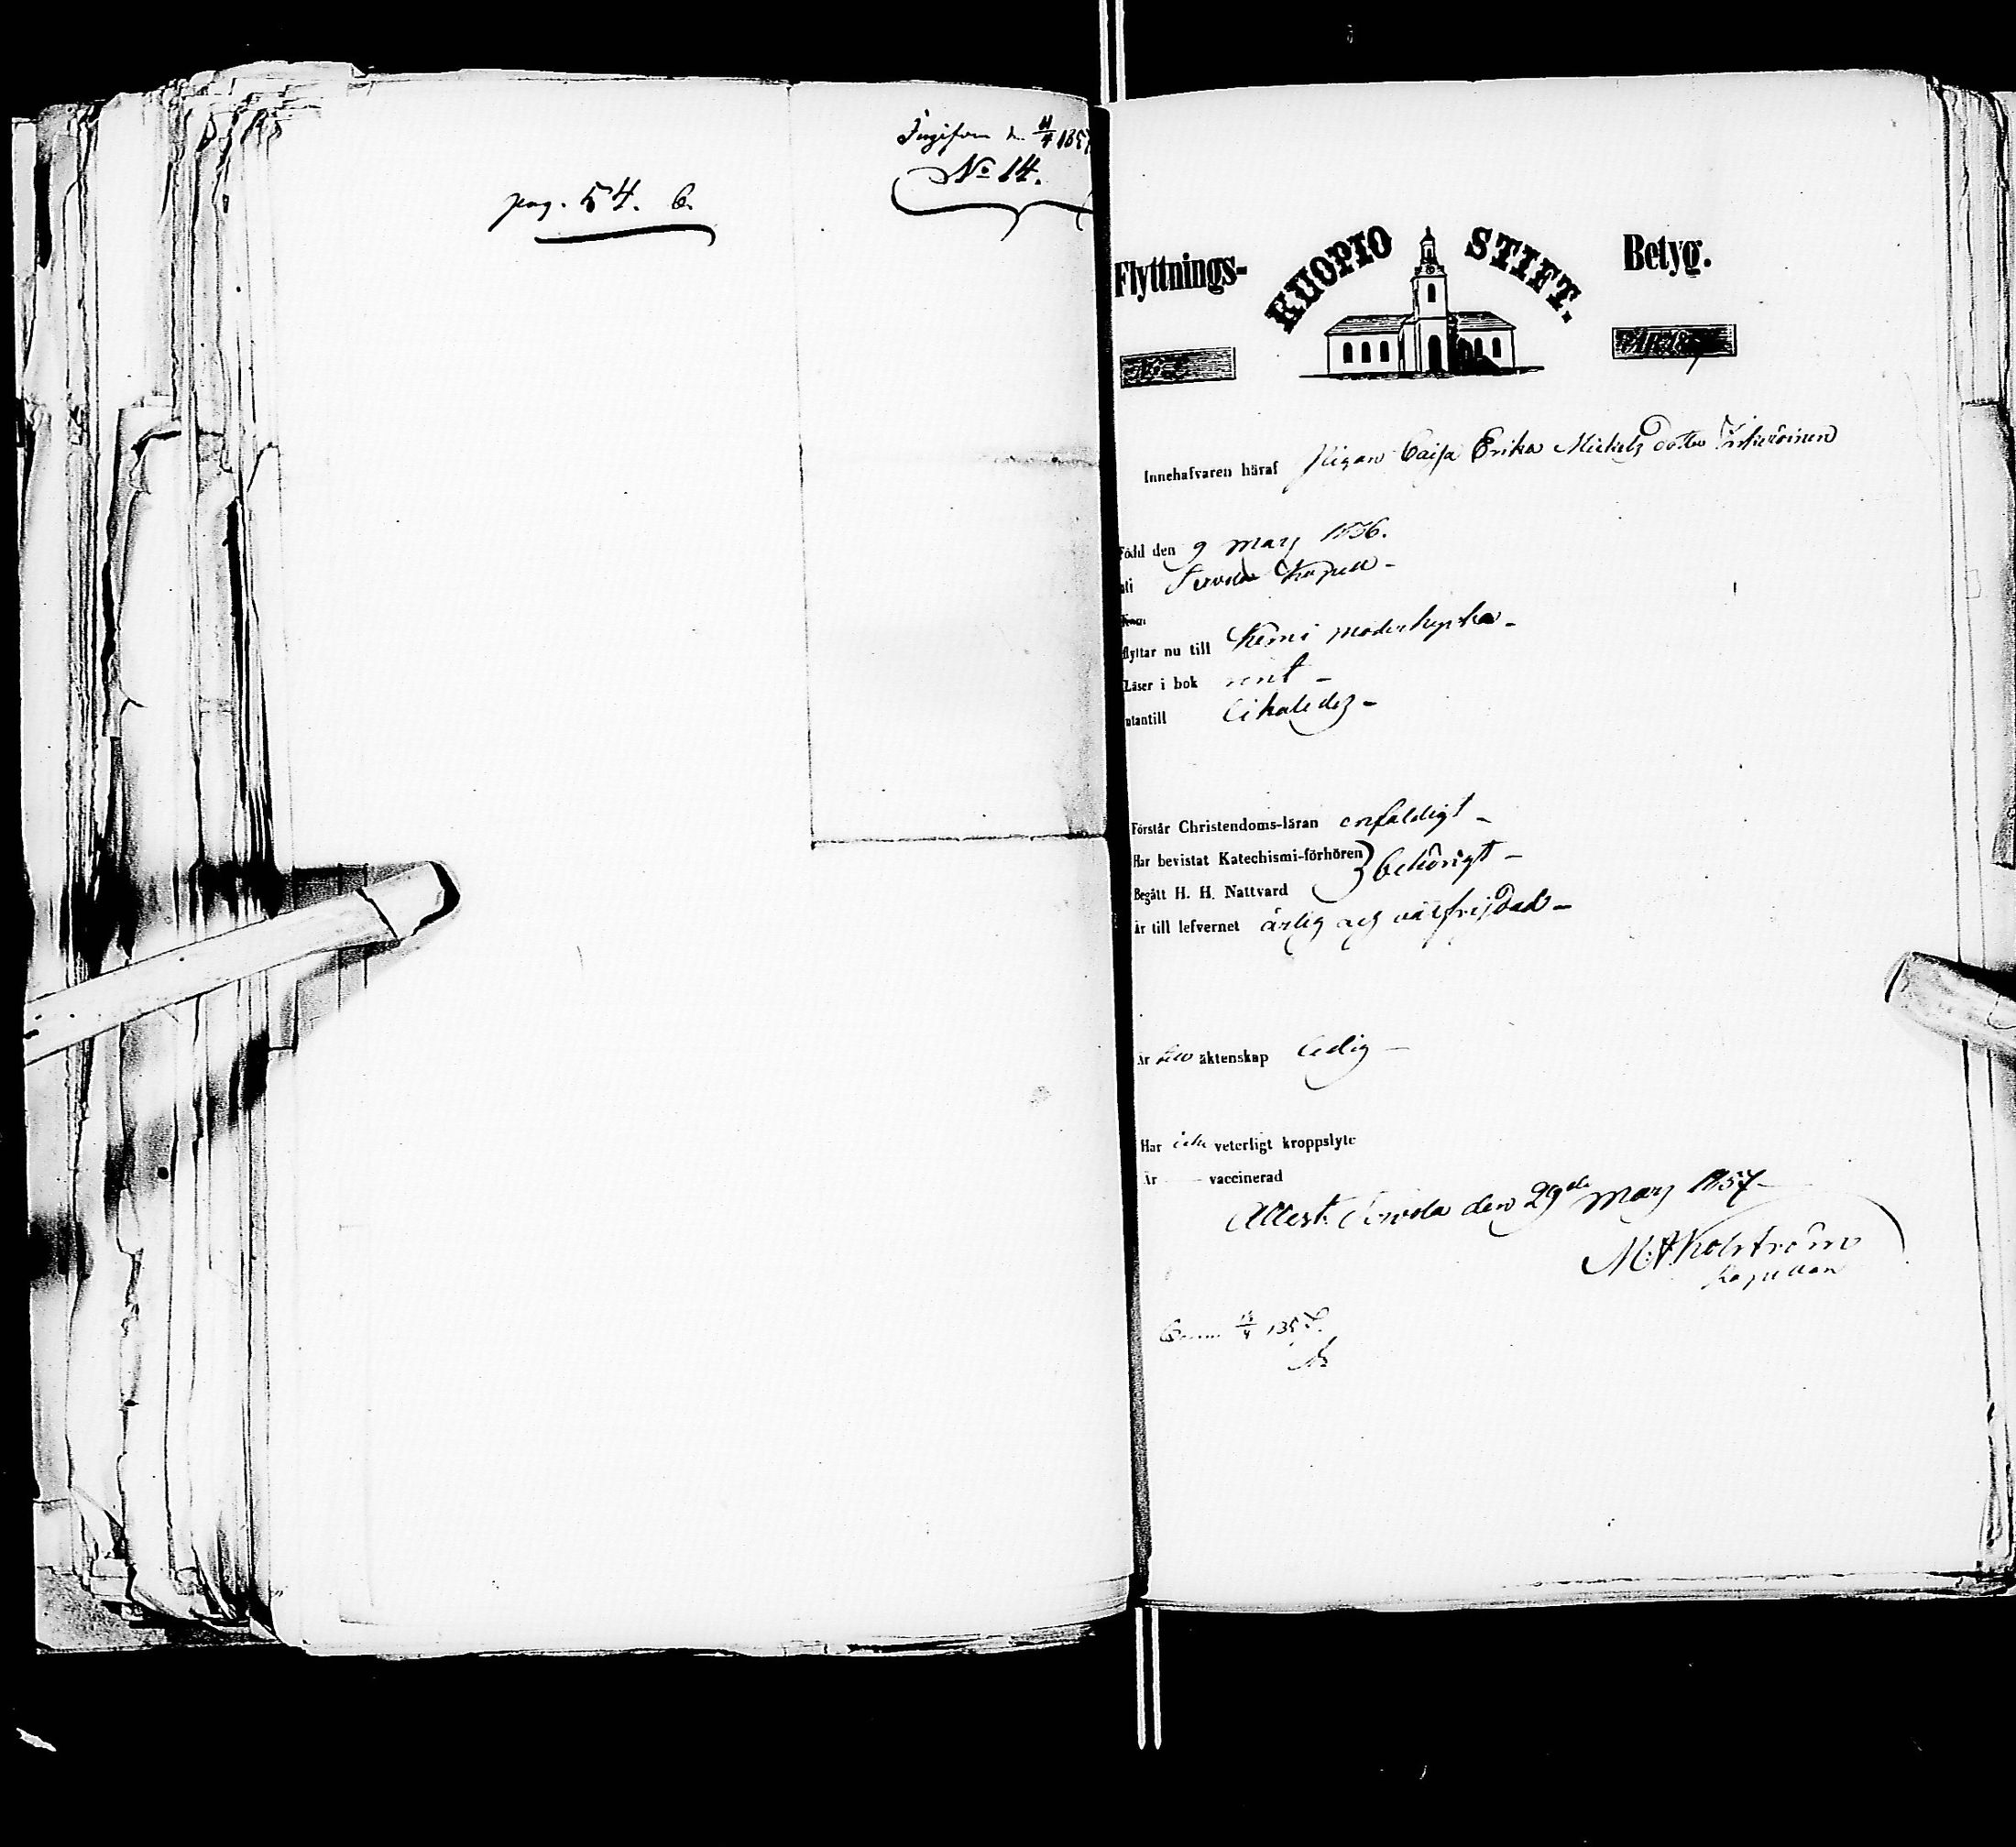 Ingifven d. 11/4 1857
No 14.
pag. 54. b.
Flyttnings- KUOPIO STIFT. Betyg.
No
ÅR 18
Innehafvaren häraf Pigan Caisa Erika Michels dotter
Född den 9 Mars 1836.
uti Tervola Kapell -
flyttar nu till Kemi moderkyrka -
Läser i bok rent -
utantill likaledes -
Förstår Christendoms-läran enfaldigt -
Har bevistat Katechismi-förhören } behörigt -
Begått H. H. Nattvard
Är till lefvernet ärlig och välfrejdad -
Är till äktenskap ledig -
Har icke veterligt kroppslyte
Är — vaccinerad
Attest. Tervola den 29de Mars 1857 -
M. A. Kolström
Kapellan
1857.